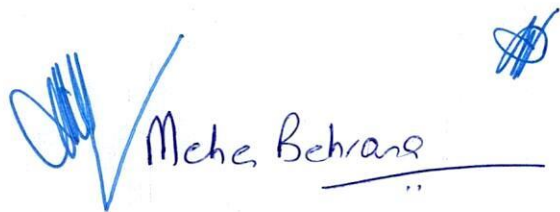 Meher Behrana